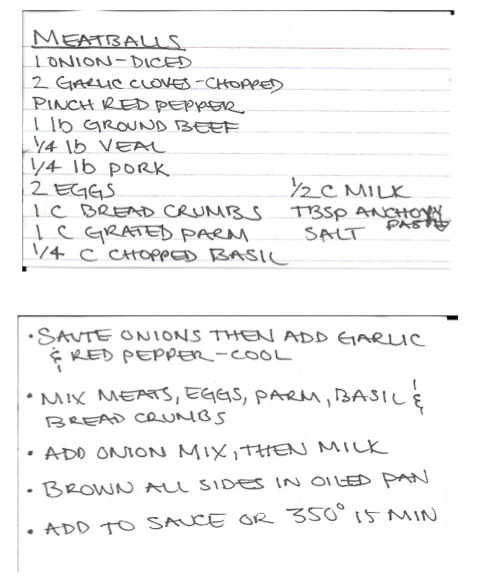 MEATBALLS
1 ONION-DICED
2 GARLIC CLOVES-CHOPPED
PINCH RED PEPPER
1 lb GROUND BEEF
1/4 lb VEAL
1/4 lb PORK
2 EGGS 1/2 C MILK
1 C BREAD CRUMBS TBSP ANCHOVY PASTE
1 C GRATED PARM SALT
1/4 C CHOPPED BASIL
• SAUTE ONIONS THEN ADD GARLIC
& RED PEPPER-COOL
• MIX MEATS, EGGS, PARM, BASIL &
BREAD CRUMBS
• ADD ONION MIX, THEN MILK
• BROWN ALL SIDES IN OILED PAN
• ADD TO SAUCE OR 350° 15 MIN